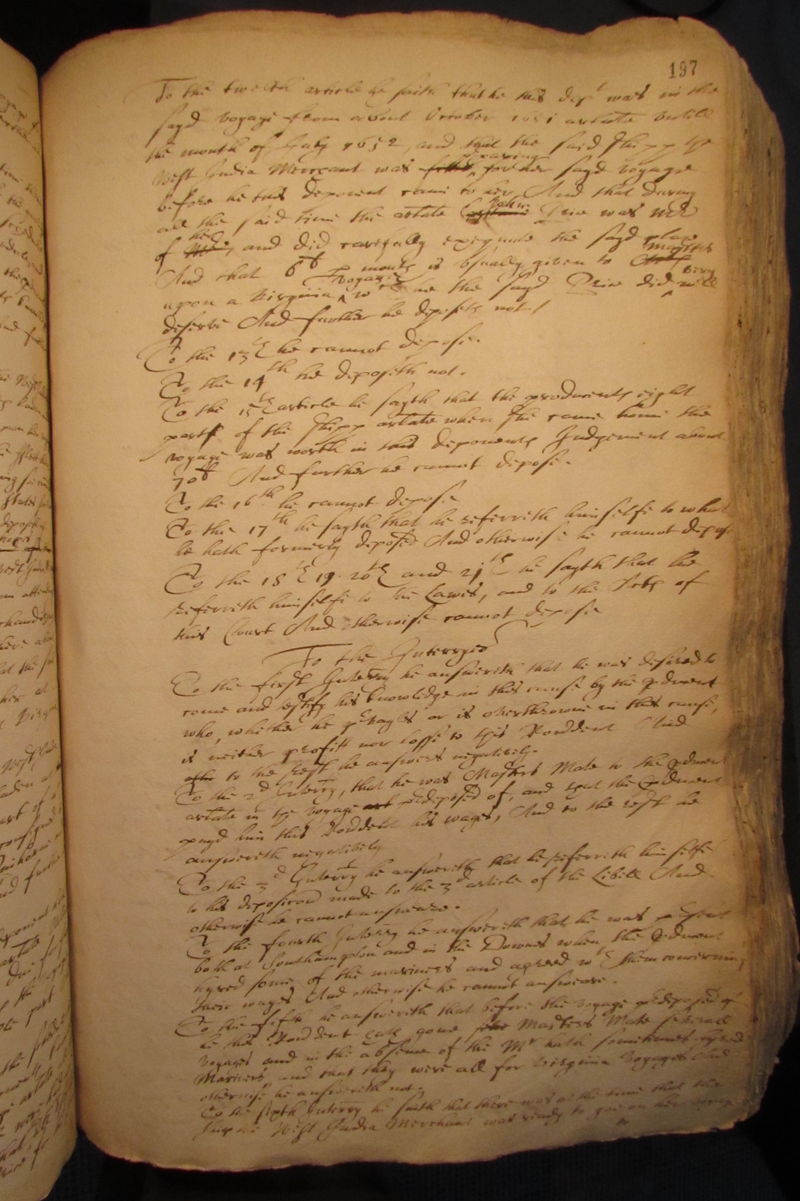 197
To the twelth article he saith that he this depᵗ was in the
sayd voyage from about October 1651 arlate untill
the month of July 1652, and that the said shipp the
West India Merchant was preparing for her sayd voyage
before he this deponent came to her, And that during
all the said time the arlate John Prin was Mr
of her, and did carefully execute the sayd place
And that 6ˡⁱ p month is usually given to Masters
upon a Virginia voyage, wᶜʰ the sayd Prin did very well
deserve And further he deposeth not./
To the 13ᵗʰ he cannot depose.
To the 14ᵗʰ he deposeth not.
To the 15ᵗʰ article he sayth that the producents eight
parte of the shipp arlate when she came home the
voyage was worth in this deponents Judgement about
70ˡⁱ And further he cannot depose.
To the 16ᵗʰ he cannot depose
To the 17ᵗʰ he sayth that he referreth himselfe to what
he hath formerly deposed And otherwise he cannot depose
To the 18ᵗʰ 19. 20ᵗʰ and 21ᵗʰ he sayth that he
referreth himselfe to the Lawes, and to the Acts of
this Court And otherwise cannot depose
To the Interryes
To the first Interry he answereth that he was desired to
come and testify his knowledge in this cause by the pducent
who, whether he pvayles or is overthrowne in this cause,
is neither profitt nor losse to this Rondent And
to the rest he answers negatively.
To the 2ᵈ Interry, that he was Masters Mate to the pducent
arlate in the voyage pdeposed of, and that the pducent
payd him this Rondent his wages, And to the rest he
answereth negatively
To the 3ᵈ Interry he answereth that he referreth himselfe
to his deposicon made to the 3ᵈ article of the Libell And
otherwise he cannot answeare.
To the fourth Interry he answereth that he was pʳsent
both at Southampton and in the Downes when the pducent
agreed some of the mariners and agreed wᵗʰ them concerning
their wages And otherwise he cannot answeare.
To the fifth he answereth that before the voyage pdeposed of
he this Rondent hath gone Masters Mate severall
voyages and in the absence of the Mʳ hath sometimes
Mariners, and that they were all for Virginia voyages And
otherwise he answereth not.
To the sixth Interry he saith that there was at the time that the
shipp the West India Merchant was ready to goe on her